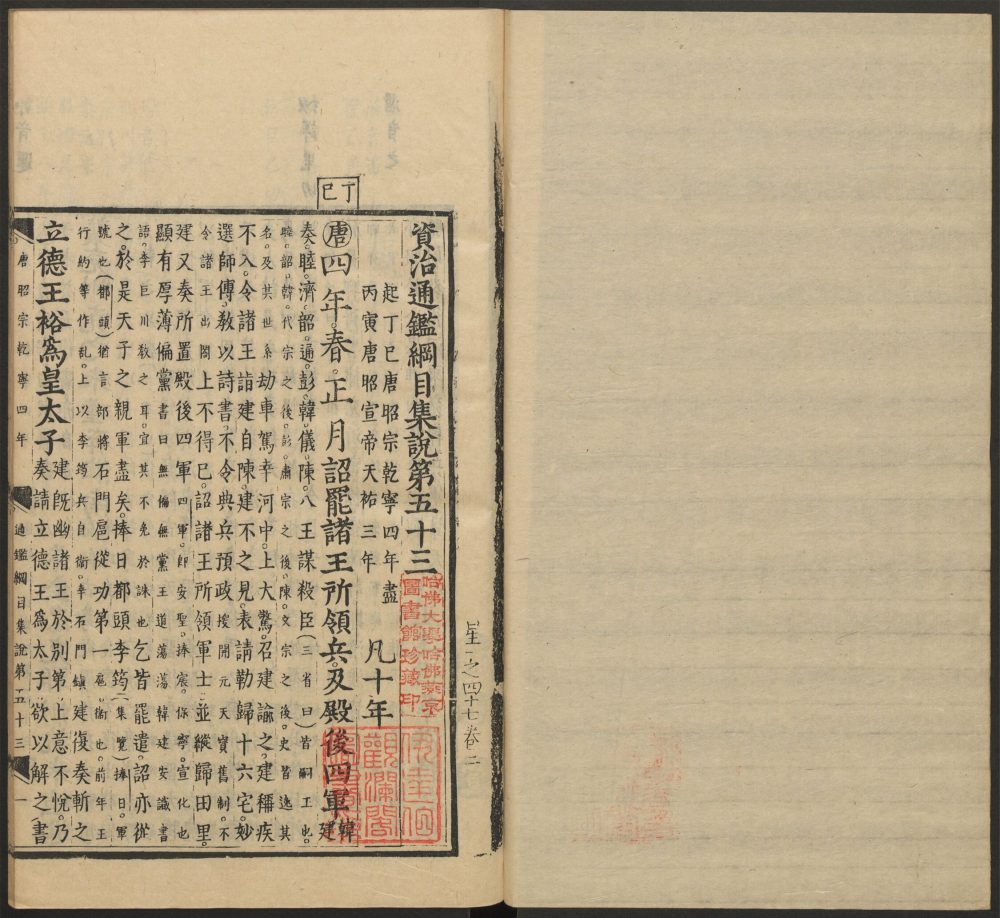 資治通鑑綱目集說第五十三
起丁巳唐昭宗乾寧四年盡
丙寅唐昭宣帝天祐三年
凡十年
丁巳
唐四年春正月詔罷諸王所領兵及殿後四軍韓
建
奏睦濟韶通彭韓儀陳八王謀殺臣(三省曰)皆嗣王也
睦韶韓代宗之後彭肅宗之後陳文宗之後史皆逸其
名及其世系劫車駕幸河中上大驚召建諭之建稱疾
不入令諸王詣建自陳建不之見表請勒歸十六宅妙
選師傅教以詩書不令典兵預政按開元天寶舊制不
令諸王出閤上不得已詔諸王所領軍士並縱歸田里
建又奏所置殿後四軍四軍即安聖捧宸保寧宣化也
顯有厚薄偏黨書曰無偏無黨王道蕩蕩韓建安識書
語李巨川教之耳宜其不免於誅也乞皆罷遣詔亦從
之於是天子之親軍盡矣捧日都頭李筠(集覽)捧日軍
號也(都頭)猶言部將石門扈從功第一扈衞也前年王
行約等作乱上以李筠兵自衞幸石門鎮建復奏斬之
立德王裕爲皇太子
建既幽諸王於別第上意不悅乃
奏請立德王爲太子欲以解之書
唐昭宗乾寧四年
通鑑綱目集說第五十三
一
哈佛大學哈佛燕京
圖書館珍藏印
觀瀾閣
之四十七卷